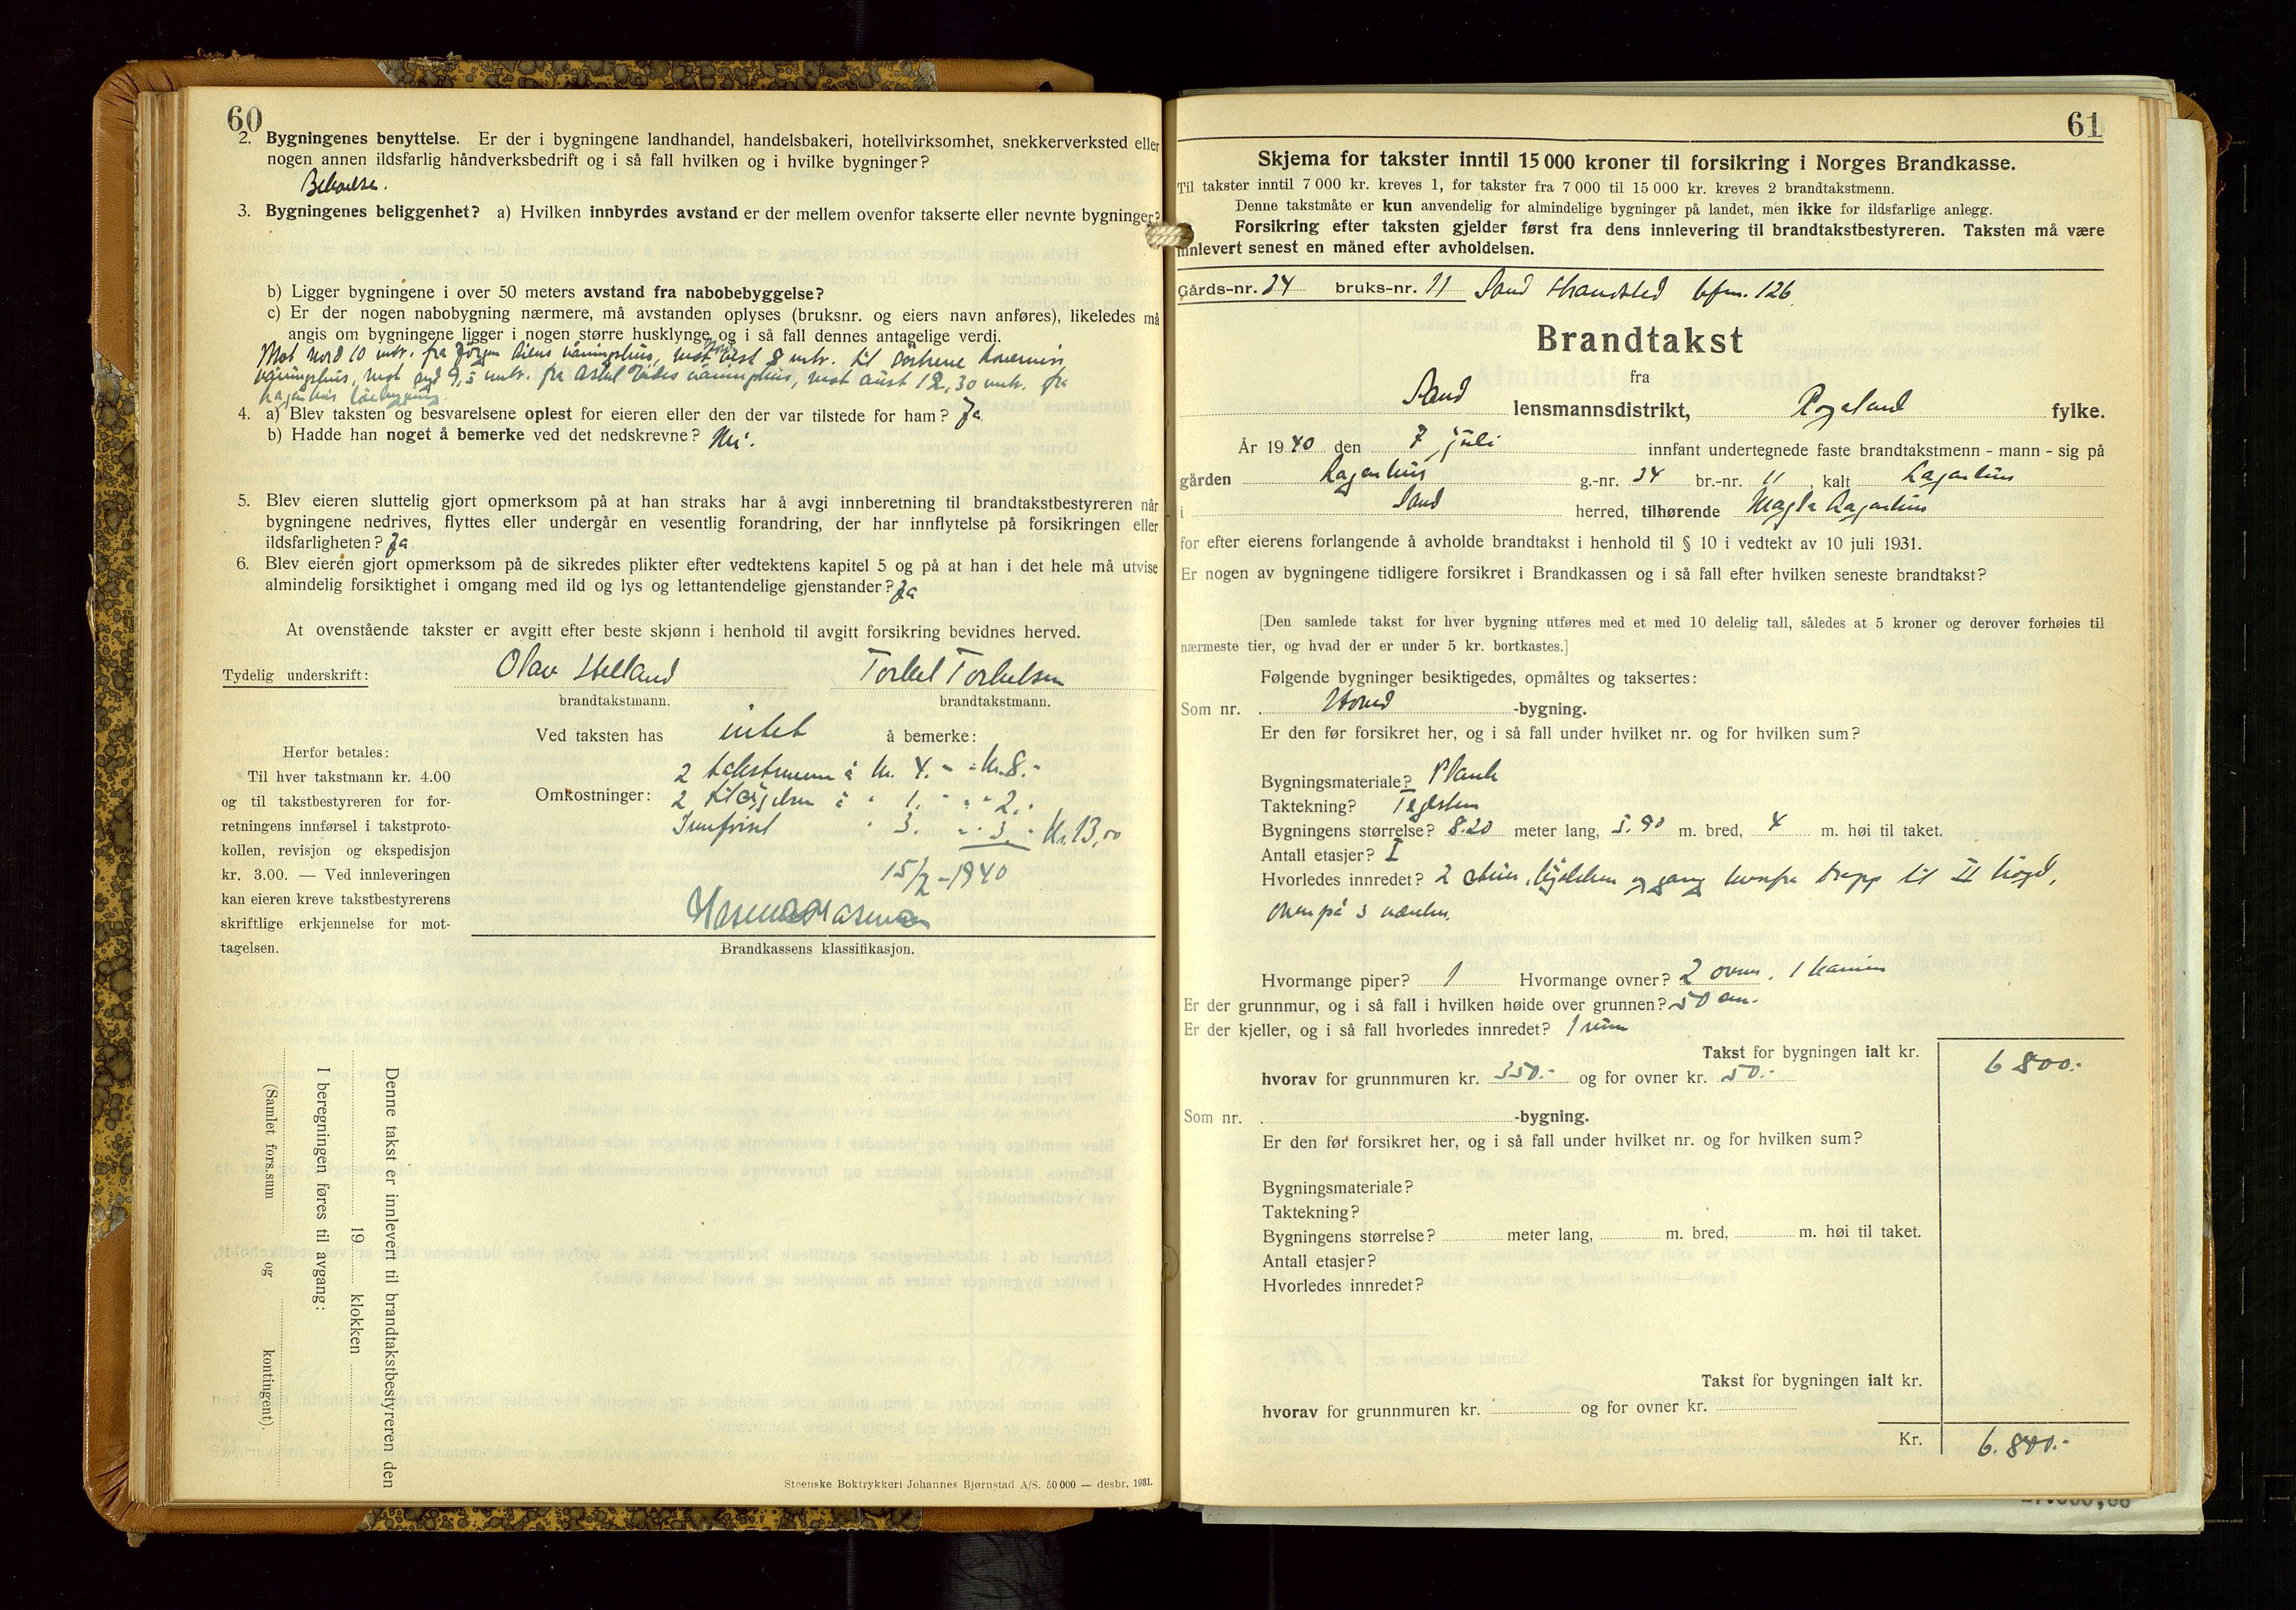 60
2. Bygningenes benyttelse. Er der i bygningene landhandel, handelsbakeri, hotellvirksomhet, snekkerverksted eller
nogen annen ildsfarlig håndverksbedrift og i så fall hvilken og i hvilke bygninger?
3. Bygningenes beliggenhet? a) Hvilken innbyrdes avstand er der mellem ovenfor takserte eller nevnte bygninger?
b) Ligger bygningene i over 50 meters avstand fra nabobebyggelse?
c) Er der nogen nabobygning nærmere, må avstanden oplyses (bruksnr. og eiers navn anføres), likeledes må
angis om bygningene ligger i nogen større husklynge og i så fall dennes antagelige verdi.
Mot nord 10 mtr. fra Jörgen våningshus, mot vest 8 mtr. til
våningshus, mot syd 9,5 mtr. fra våningshus, mot aust 12,30 mtr. fra
4. a) Blev taksten og besvarelsene oplest for eieren eller den der var tilstede for ham? Ja
b) Hadde han noget å bemerke ved det nedskrevne? Nei.
5. Blev eieren sluttelig gjort opmerksom på at han straks har å avgi innberetning til brandtakstbestyreren når
bygningene nedrives, flyttes eller undergår en vesentlig forandring, der har innflytelse på forsikringen eller
ildsfarligheten? Ja
6. Blev eieren gjort opmerksom på de sikredes plikter efter vedtektens kapitel 5 og på at han i det hele må utvise
almindelig forsiktighet i omgang med ild og lys og lettantendelige gjenstander? Ja
At ovenstående takster er avgitt efter beste skjønn i henhold til avgitt forsikring bevidnes herved.
Tydelig underskrift: Olav Helland Torkel Torkelsen
brandtakstmann. brandtakstmann.
Ved taksten has intet å bemerke:
Herfor betales:
Til hver takstmann kr. 4.00
og til takstbestyreren for for-
retningens innførsel i takstproto-
kollen, revisjon og ekspedisjon
kr. 3.00. — Ved innleveringen
kan eieren kreve takstbestyrerens
skriftlige erkjennelse for mot-
tagelsen.
2 takstmenn à kr. 4.- = kr. 8.-
Omkostninger: 2 à " 1. " " 2.-
Innførsel " 3. " 3.- Kr. 13,00
15/2 - 1940
Brandkassens klassifikasjon.
Denne takst er innlevert til brandtakstbestyreren den
19 klokken
I beregningen føres til avgang:
(Samlet fors.sum og kontingent).
Steenske Boktrykkeri Johannes Bjørnstad A/S. 50 000 — desbr. 1931.
61
Skjema for takster inntil 15 000 kroner til forsikring i Norges Brandkasse.
Til takster inntil 7 000 kr. kreves 1, for takster fra 7 000 til 15 000 kr. kreves 2 brandtakstmenn.
Denne takstmåte er kun anvendelig for almindelige bygninger på landet, men ikke for ildsfarlige anlegg.
Forsikring efter taksten gjelder først fra dens innlevering til brandtakstbestyreren. Taksten må være
innlevert senest en måned efter avholdelsen.
Gårds-nr. 34 bruks-nr. 11 Sand Strandsted bfnr. 126
Brandtakst
fra
Sand lensmannsdistrikt, Rogaland fylke.
År 1940 den 7 juli innfant undertegnede faste brandtakstmenn - mann - sig på
gården Lagarhus g.-nr. 34 br.-nr. 11, kalt Lagarhus
i Sand herred, tilhørende Magla Lagarhus
for efter eierens forlangende å avholde brandtakst i henhold til § 10 i vedtekt av 10 juli 1931.
Er nogen av bygningene tidligere forsikret i Brandkassen og i så fall efter hvilken seneste brandtakst?
[Den samlede takst for hver bygning utføres med et med 10 delelig tall, således at 5 kroner og derover forhøies til
nærmeste tier, og hvad der er under 5 kr. bortkastes.]
Følgende bygninger besiktigedes, opmåltes og taksertes:
Som nr. Hoved -bygning.
Er den før forsikret her, og i så fall under hvilket nr. og for hvilken sum?
Bygningsmateriale? Plank
Taktekning? Teglsten
Bygningens størrelse? 8.20 meter lang, 5.90 m. bred, 4 m. høi til taket.
Antall etasjer? I
Hvorledes innredet? 2 stuer, kjøkken og gang hvorfra trapp til II høgd,
ovenpå 3 værelser.
Hvormange piper? 1 Hvormange ovner? 2 ovner. 1 kamin
Er der grunnmur, og i så fall i hvilken høide over grunnen? 50 cm.
Er der kjeller, og i så fall hvorledes innredet? 1 rum
Takst for bygningen ialt kr. 6 800.-
hvorav for grunnmuren kr. 350.- og for ovner kr. 50.-
Som nr. -bygning.
Er den før forsikret her, og i så fall under hvilket nr. og for hvilken sum?
Bygningsmateriale?
Taktekning?
Bygningens størrelse? meter lang, m. bred, m. høi til taket.
Antall etasjer?
Hvorledes innredet?
Takst for bygningen ialt kr.
hvorav for grunnmuren kr. og for ovner kr.
Kr. 6.800.-